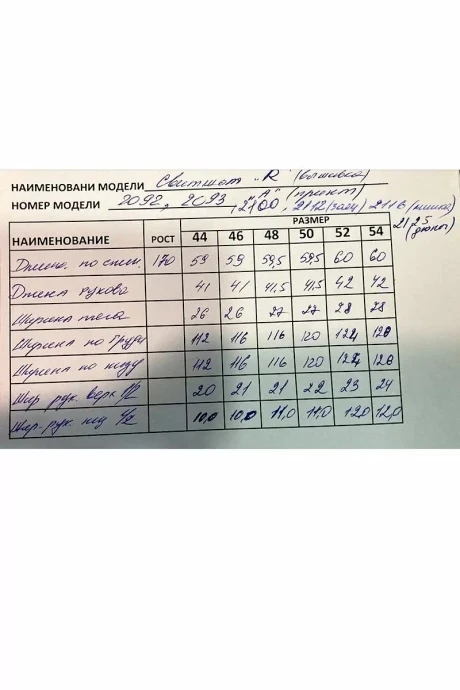 НАИМЕНОВАНИ МОДЕЛИ Свитшот „R" (вышивка)
НОМЕР МОДЕЛИ 2092, 2093, „А" (принт) 2100, 2112 (заец) 2116 (мишка)
2125
НАИМЕНОВАНИЕ РОСТ РАЗМЕР
44 46 48 50 52 54
Длина по спин. 170 59 59 59,5 59,5 60 60
Длина рукова 41 41 41,5 41,5 42 42
Ширина плеча 26 26 27 27 28 28
Ширина по груди 112 116 116 120 124 128
Ширина по низу 112 116 116 120 124 128
Шир. рук. верх 1/2 20 21 21 22 23 24
Шир. рук. низ 1/2 10,0 10,0 11,0 11,0 12,0 12,0